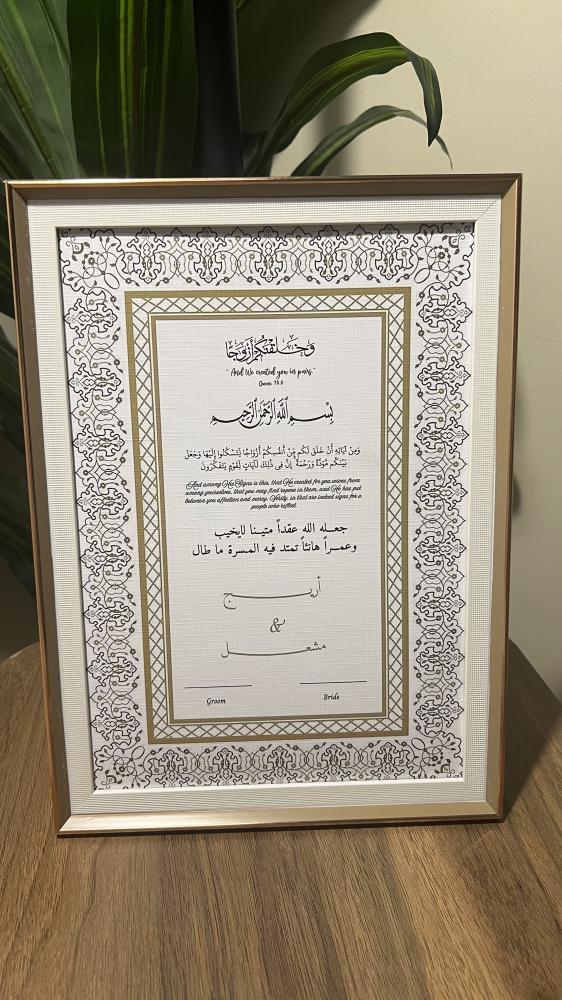 وَخَلَقْنَٰكُمْ أَزْوَٰجًا
"And We created you in pairs."
Quran 78:8
بِسْمِ اللَّهِ الرَّحْمَٰنِ الرَّحِيمِ
وَمِنْ آيَاتِهِ أَنْ خَلَقَ لَكُم مِّنْ أَنفُسِكُمْ أَزْوَاجًا لِّتَسْكُنُوا إِلَيْهَا وَجَعَلَ
بَيْنَكُم مَّوَدَّةً وَرَحْمَةً إِنَّ فِي ذَٰلِكَ لَآيَاتٍ لِّقَوْمٍ يَتَفَكَّرُونَ
And among His Signs is this, that He created for you wives from
among yourselves, that you may find repose in them, and He has put
between you affection and mercy. Verily, in that are indeed signs for a
people who reflect.
جعله الله عقداً متينا لايخيب
وعمراً هانئاً تمتد فيه المسرة ما طال
أريج
&
مشعل
Groom
Bride